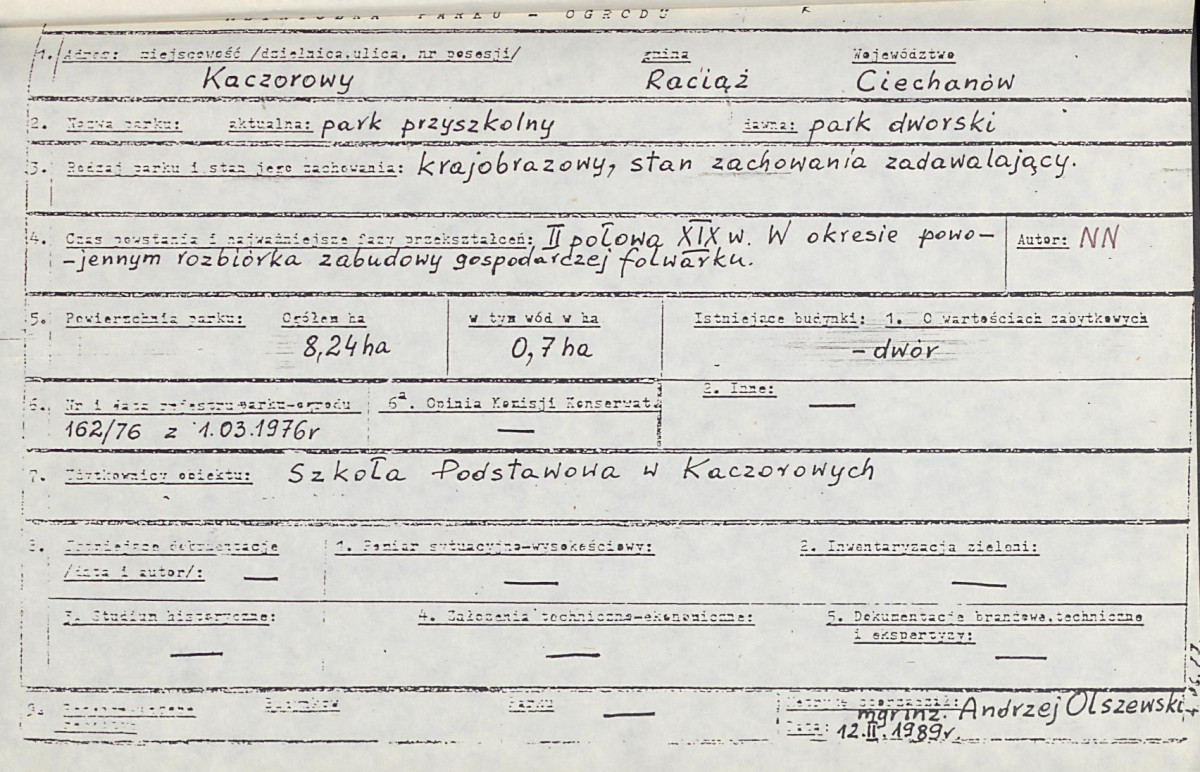 PARKU - OGRODU
1. Adres: miejscowość /dzielnica, ulica, nr posesji/ gmina Województwo
Kaczorowy Raciąż Ciechanów
2. Nazwa parku: aktualna: park przyszkolny dawna: park dworski
3. Rodzaj parku i stan jego zachowania: krajobrazowy, stan zachowania zadawalający.
4. Czas powstania i najważniejsze fazy przekształceń: II połowa XIX w. W okresie powo- Autor: NN
-jennym rozbiórka zabudowy gospodarczej folwarku.
5. Powierzchnia parku: Ogółem ha w tym wód w ha Istniejące budynki: 1. O wartościach zabytkowych
8,24 ha 0,7 ha - dwór
6. Nr i data rejestru parku-ogrodu 6a. Opinia Komisji Konserwat. 2. Inne: —
162/76 z 1.03.1976r —
7. Użytkownicy obiektu: Szkoła Podstawowa w Kaczorowych
8. Istniejące dokumentacje 1. Pomiar sytuacyjno-wysokościowy: 2. Inwentaryzacja zieleni:
/data i autor/: — — —
3. Studium historyczne: 4. Założenia techniczno-ekonomiczne: 5. Dokumentacje branżowe, techniczne
i ekspertyzy:
— — —
9. budynków parku —
mgr inż. Andrzej Olszewski
Data: 12.II.1989r.